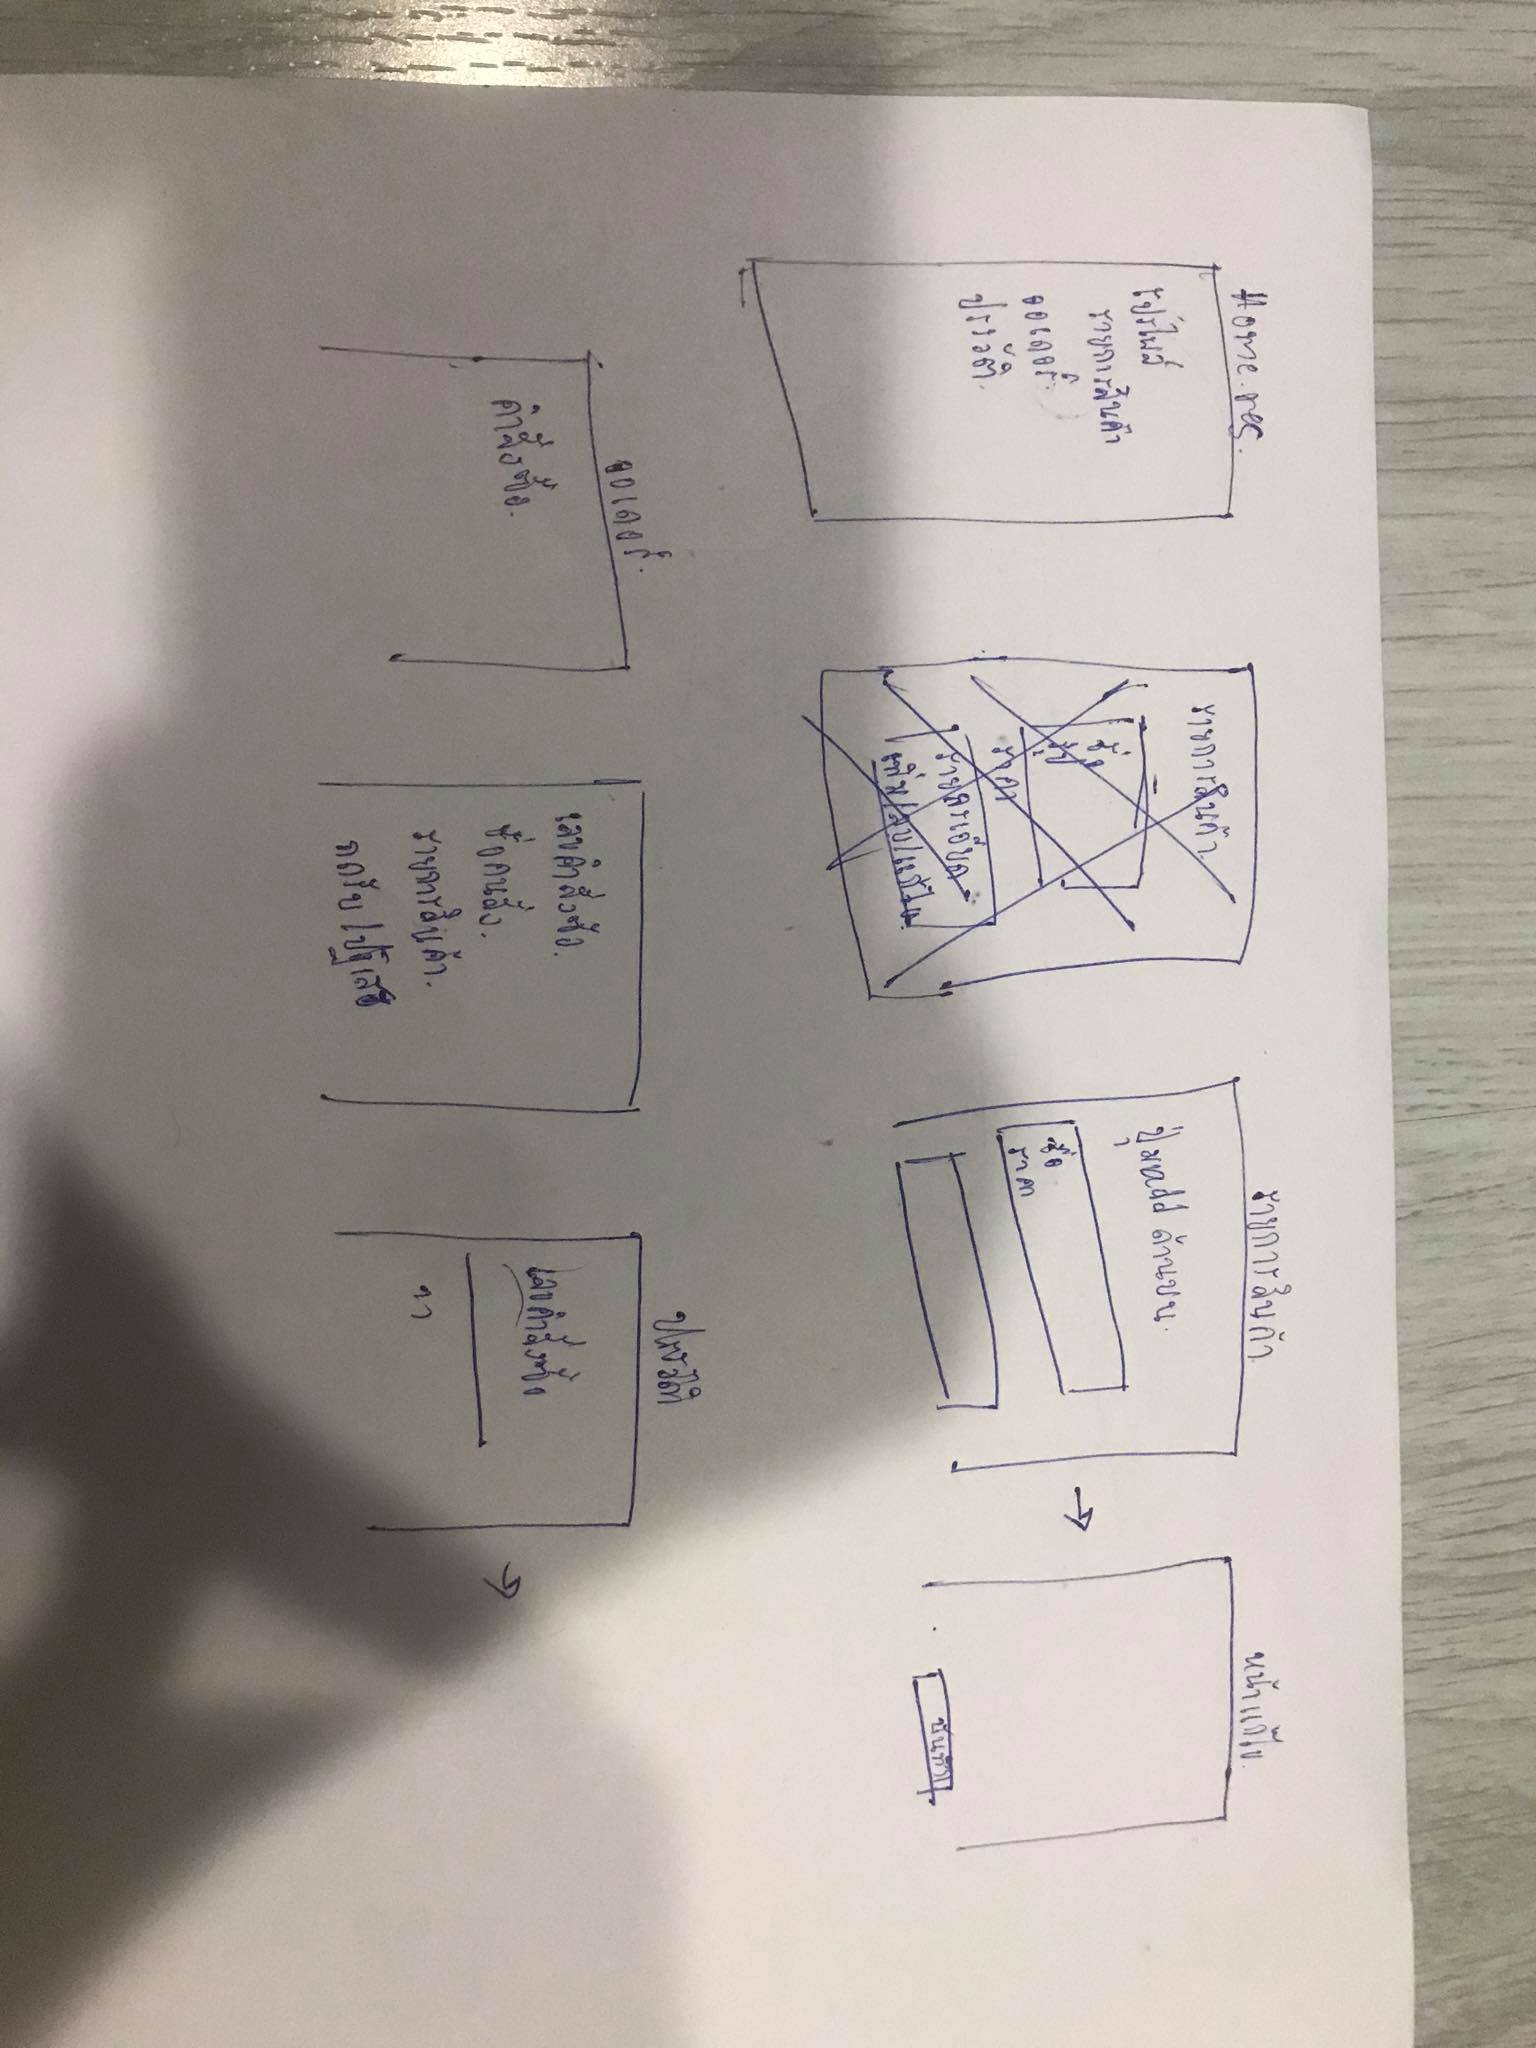 Home res.
โปรไฟล์
รายการสินค้า
ออเดอร์
ประวัติ.
รายการสินค้า.
ชื่อ
รูป
ราคา
รายละเอียด
เพิ่ม/ลบ/แก้ไข.
รายการสินค้า.
ปุ่ม add ด้านบน.
ชื่อ
ราคา
→
หน้าแก้ไข.
บันทึก
ออเดอร์.
คำสั่งซื้อ.
เลขคำสั่งซื้อ.
ชื่อคนสั่ง.
รายการสินค้า.
กดรับ/ปฏิเสธ
ประวัติ
เลขคำสั่งซื้อ
→